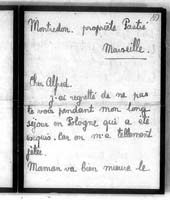 Montredon, propriété Pastré
Marseille.
Cher Alfred.
j'ai regretté de ne pas
te voir pendant mon long
séjour en Pologne qui a été
exquis. Car on m'a tellement
gâtée.
Maman va bien mieux le